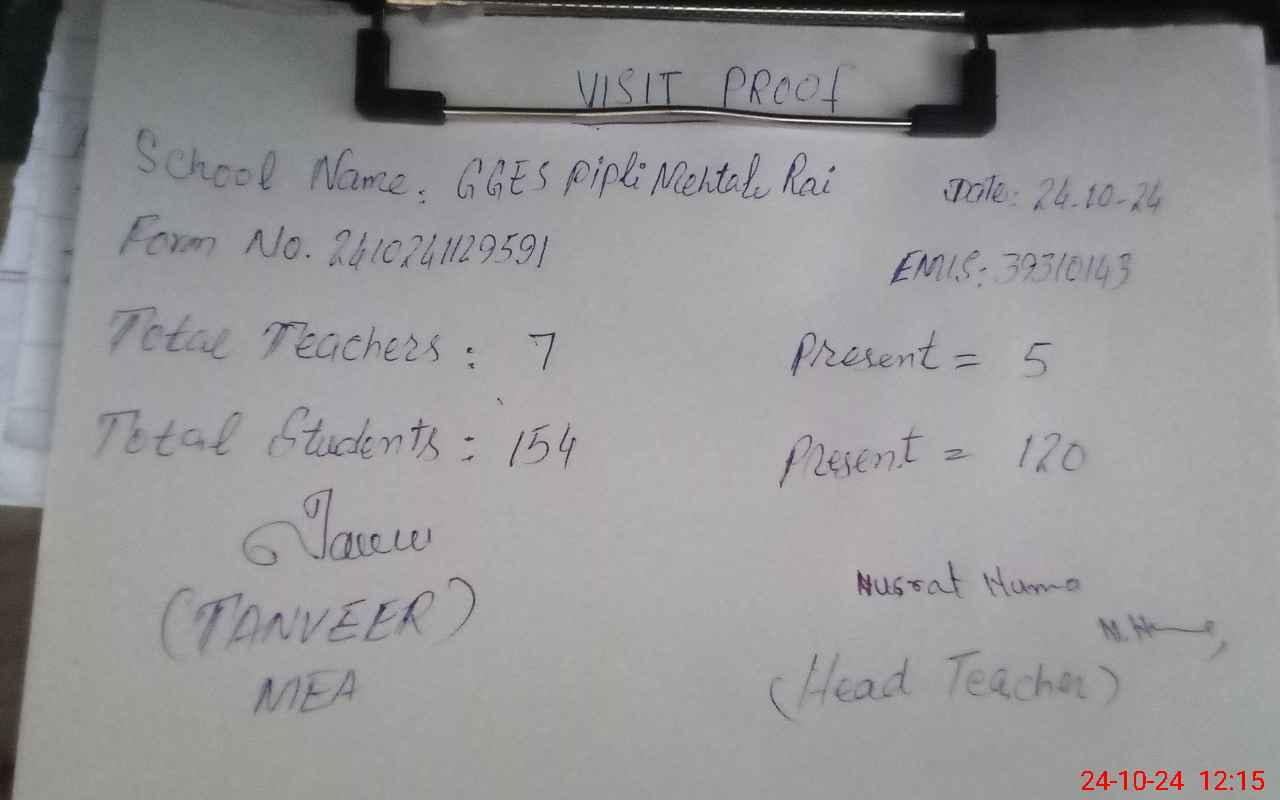 VISIT PROOF
School Name: GGES Pipli Mehtab Rai
Date: 24-10-24
Form No. 2410241129591
EMIS: 39310143
Total Teachers: 7
Present = 5
Total Students: 154
Present = 120
(TANVEER)
MEA
Nusrat Huma
(Head Teacher)
24-10-24 12:15